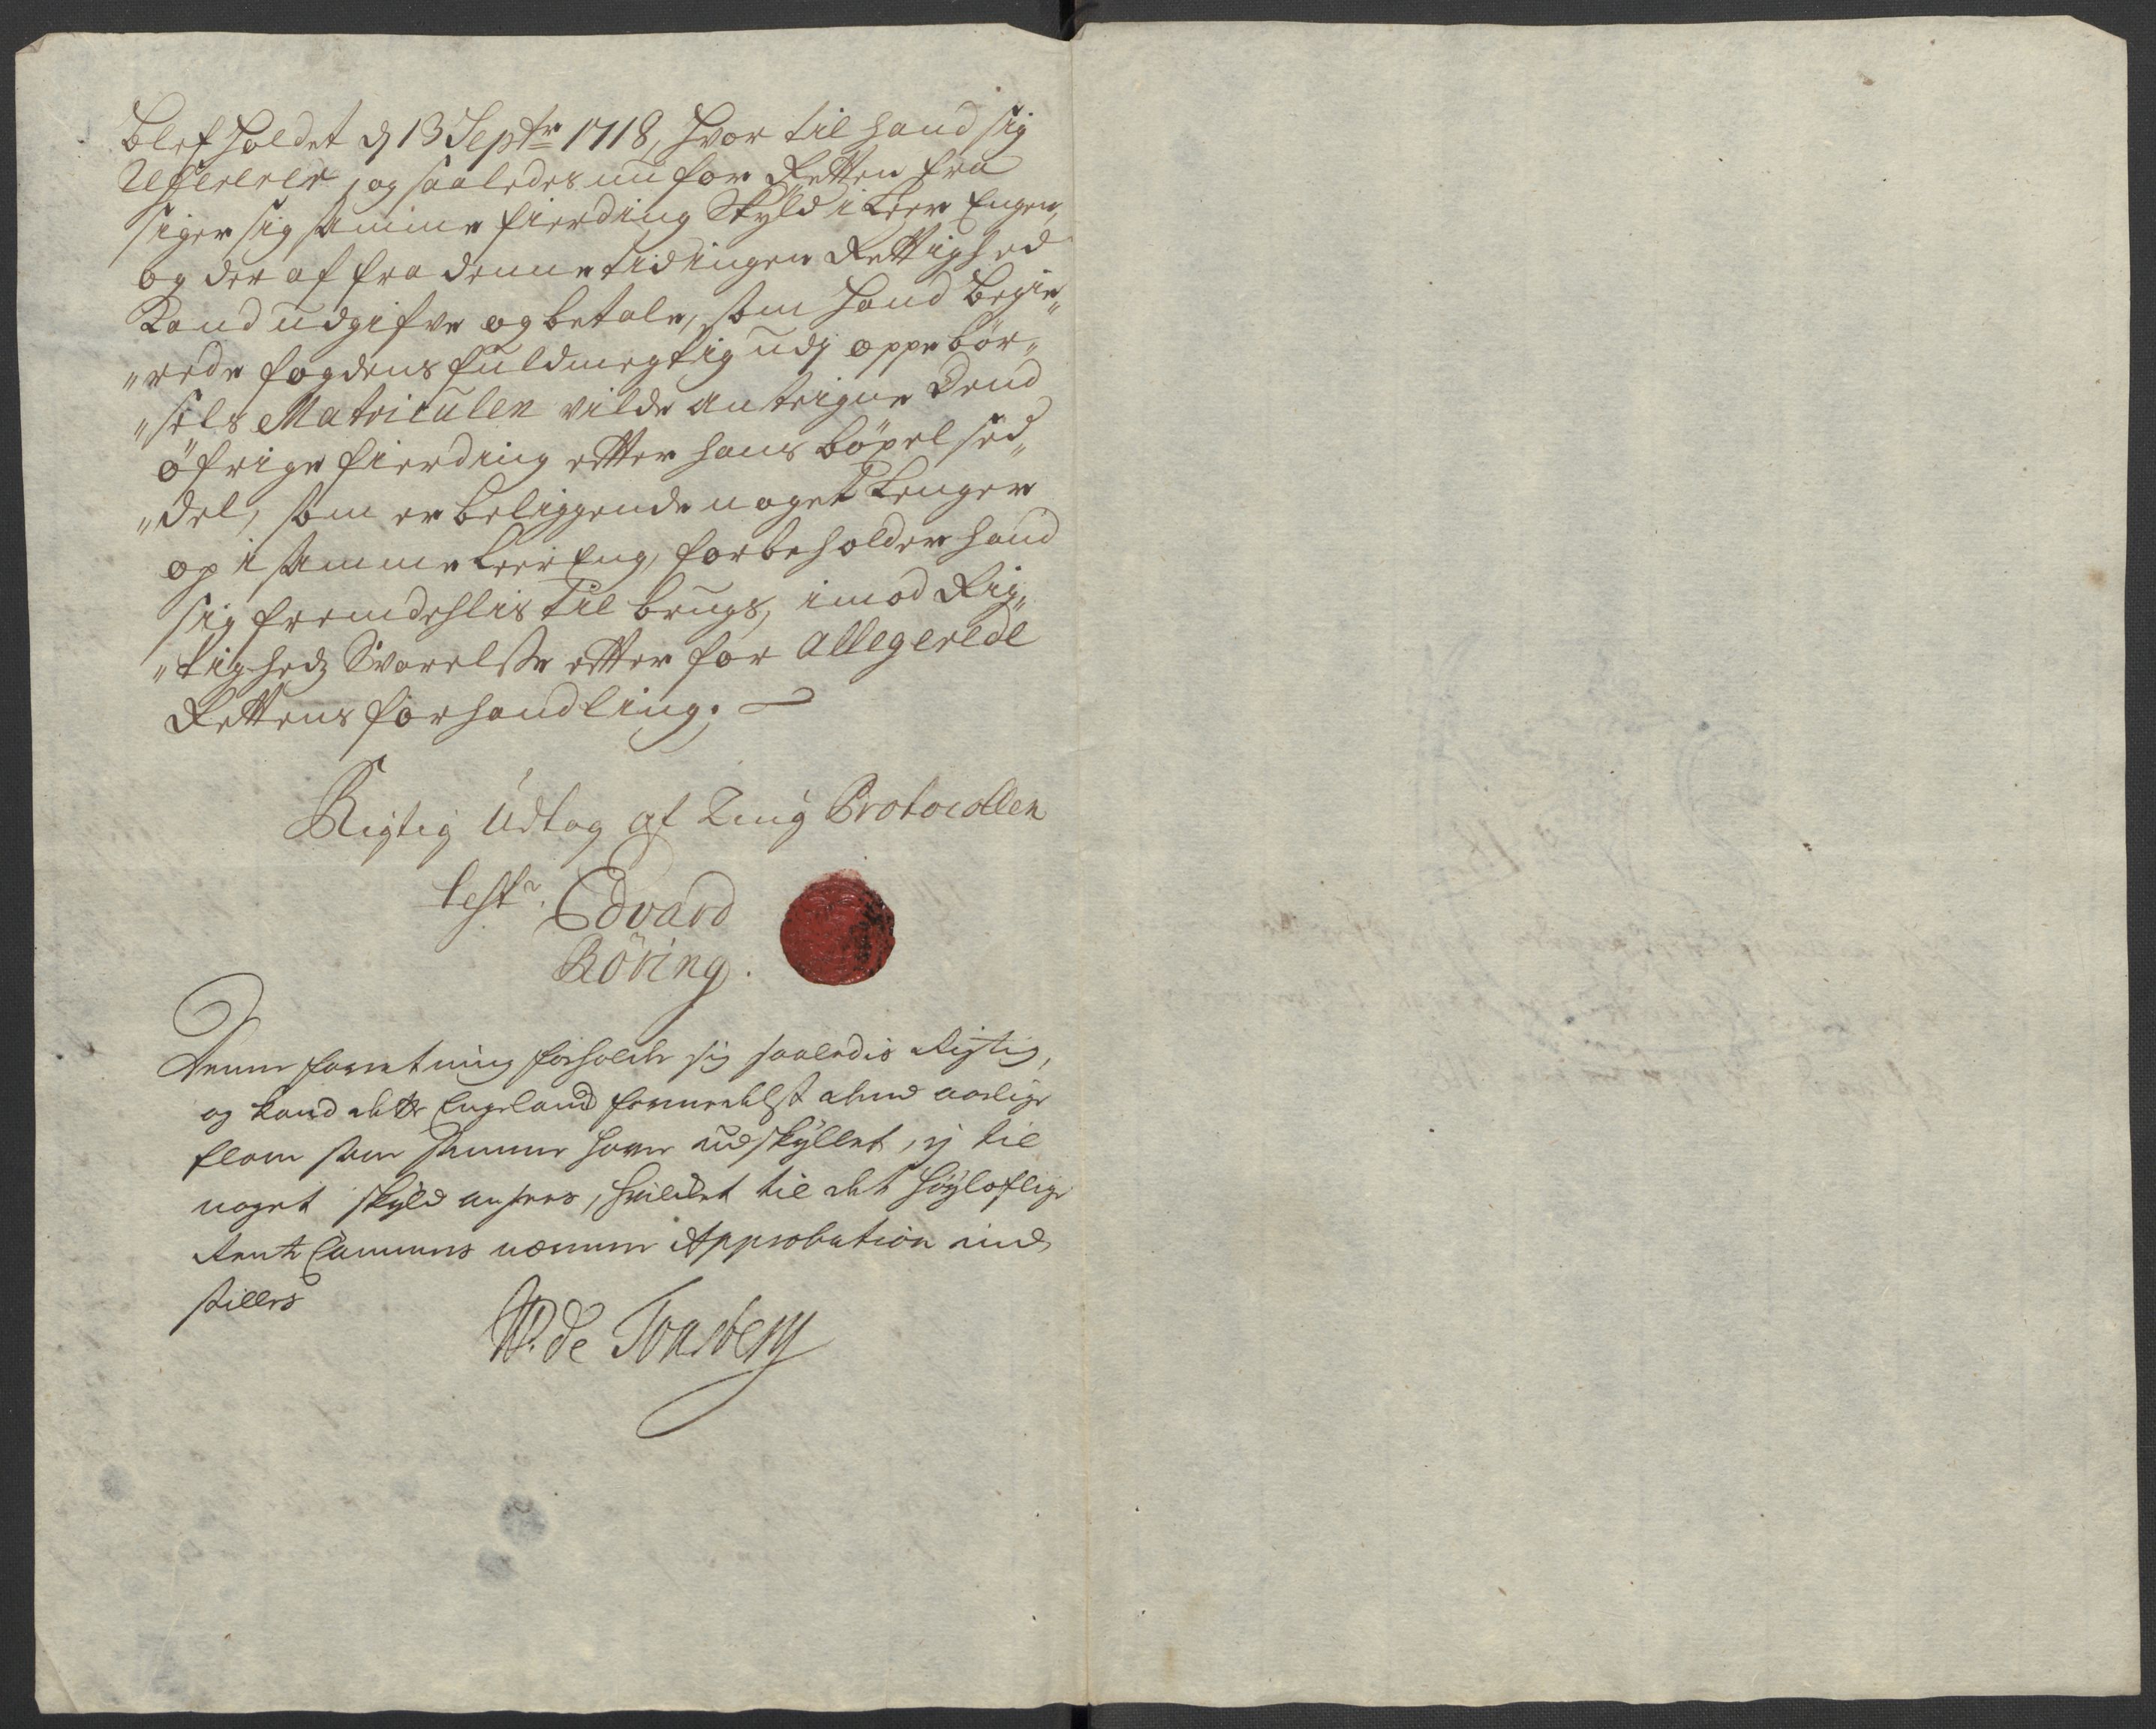 blef holdet d 13 Septr 1718, hvor til hand sig
Refererer, og saaledes nu for Retten fra
siger sig samme fierding Skyld i Leer Engen,
og der af fra denne tid ingen Rettighed
Kand udgifve og betale, som hand begie„
„rede fogdens fuldmegtig udj oppebør„
„sels Matriculen vilde anteigne Dend
öfrige fierding etter hans böxelsed„
„del, som er beliggende noget Lenger
op i samme Leer Eng, forbeholder hand
sig fremdehlis til brugs, imod Rig„
„tigheds Svarelse etter for allegerede
Rettens forhandling.
Rigtig Udtog af Ting Protocollen
test. Edvard
Röring.
Denne forretning forholder sig saaledis Rigtig,
og kand dette Engeland formedelst dend aarlige
flom som samme haver udskyllet, ej til
noget skyld ansees, hvilket til det höyloflige
Rente Cammers nærmere Approbation ind
stilles
W. de Tonsberg